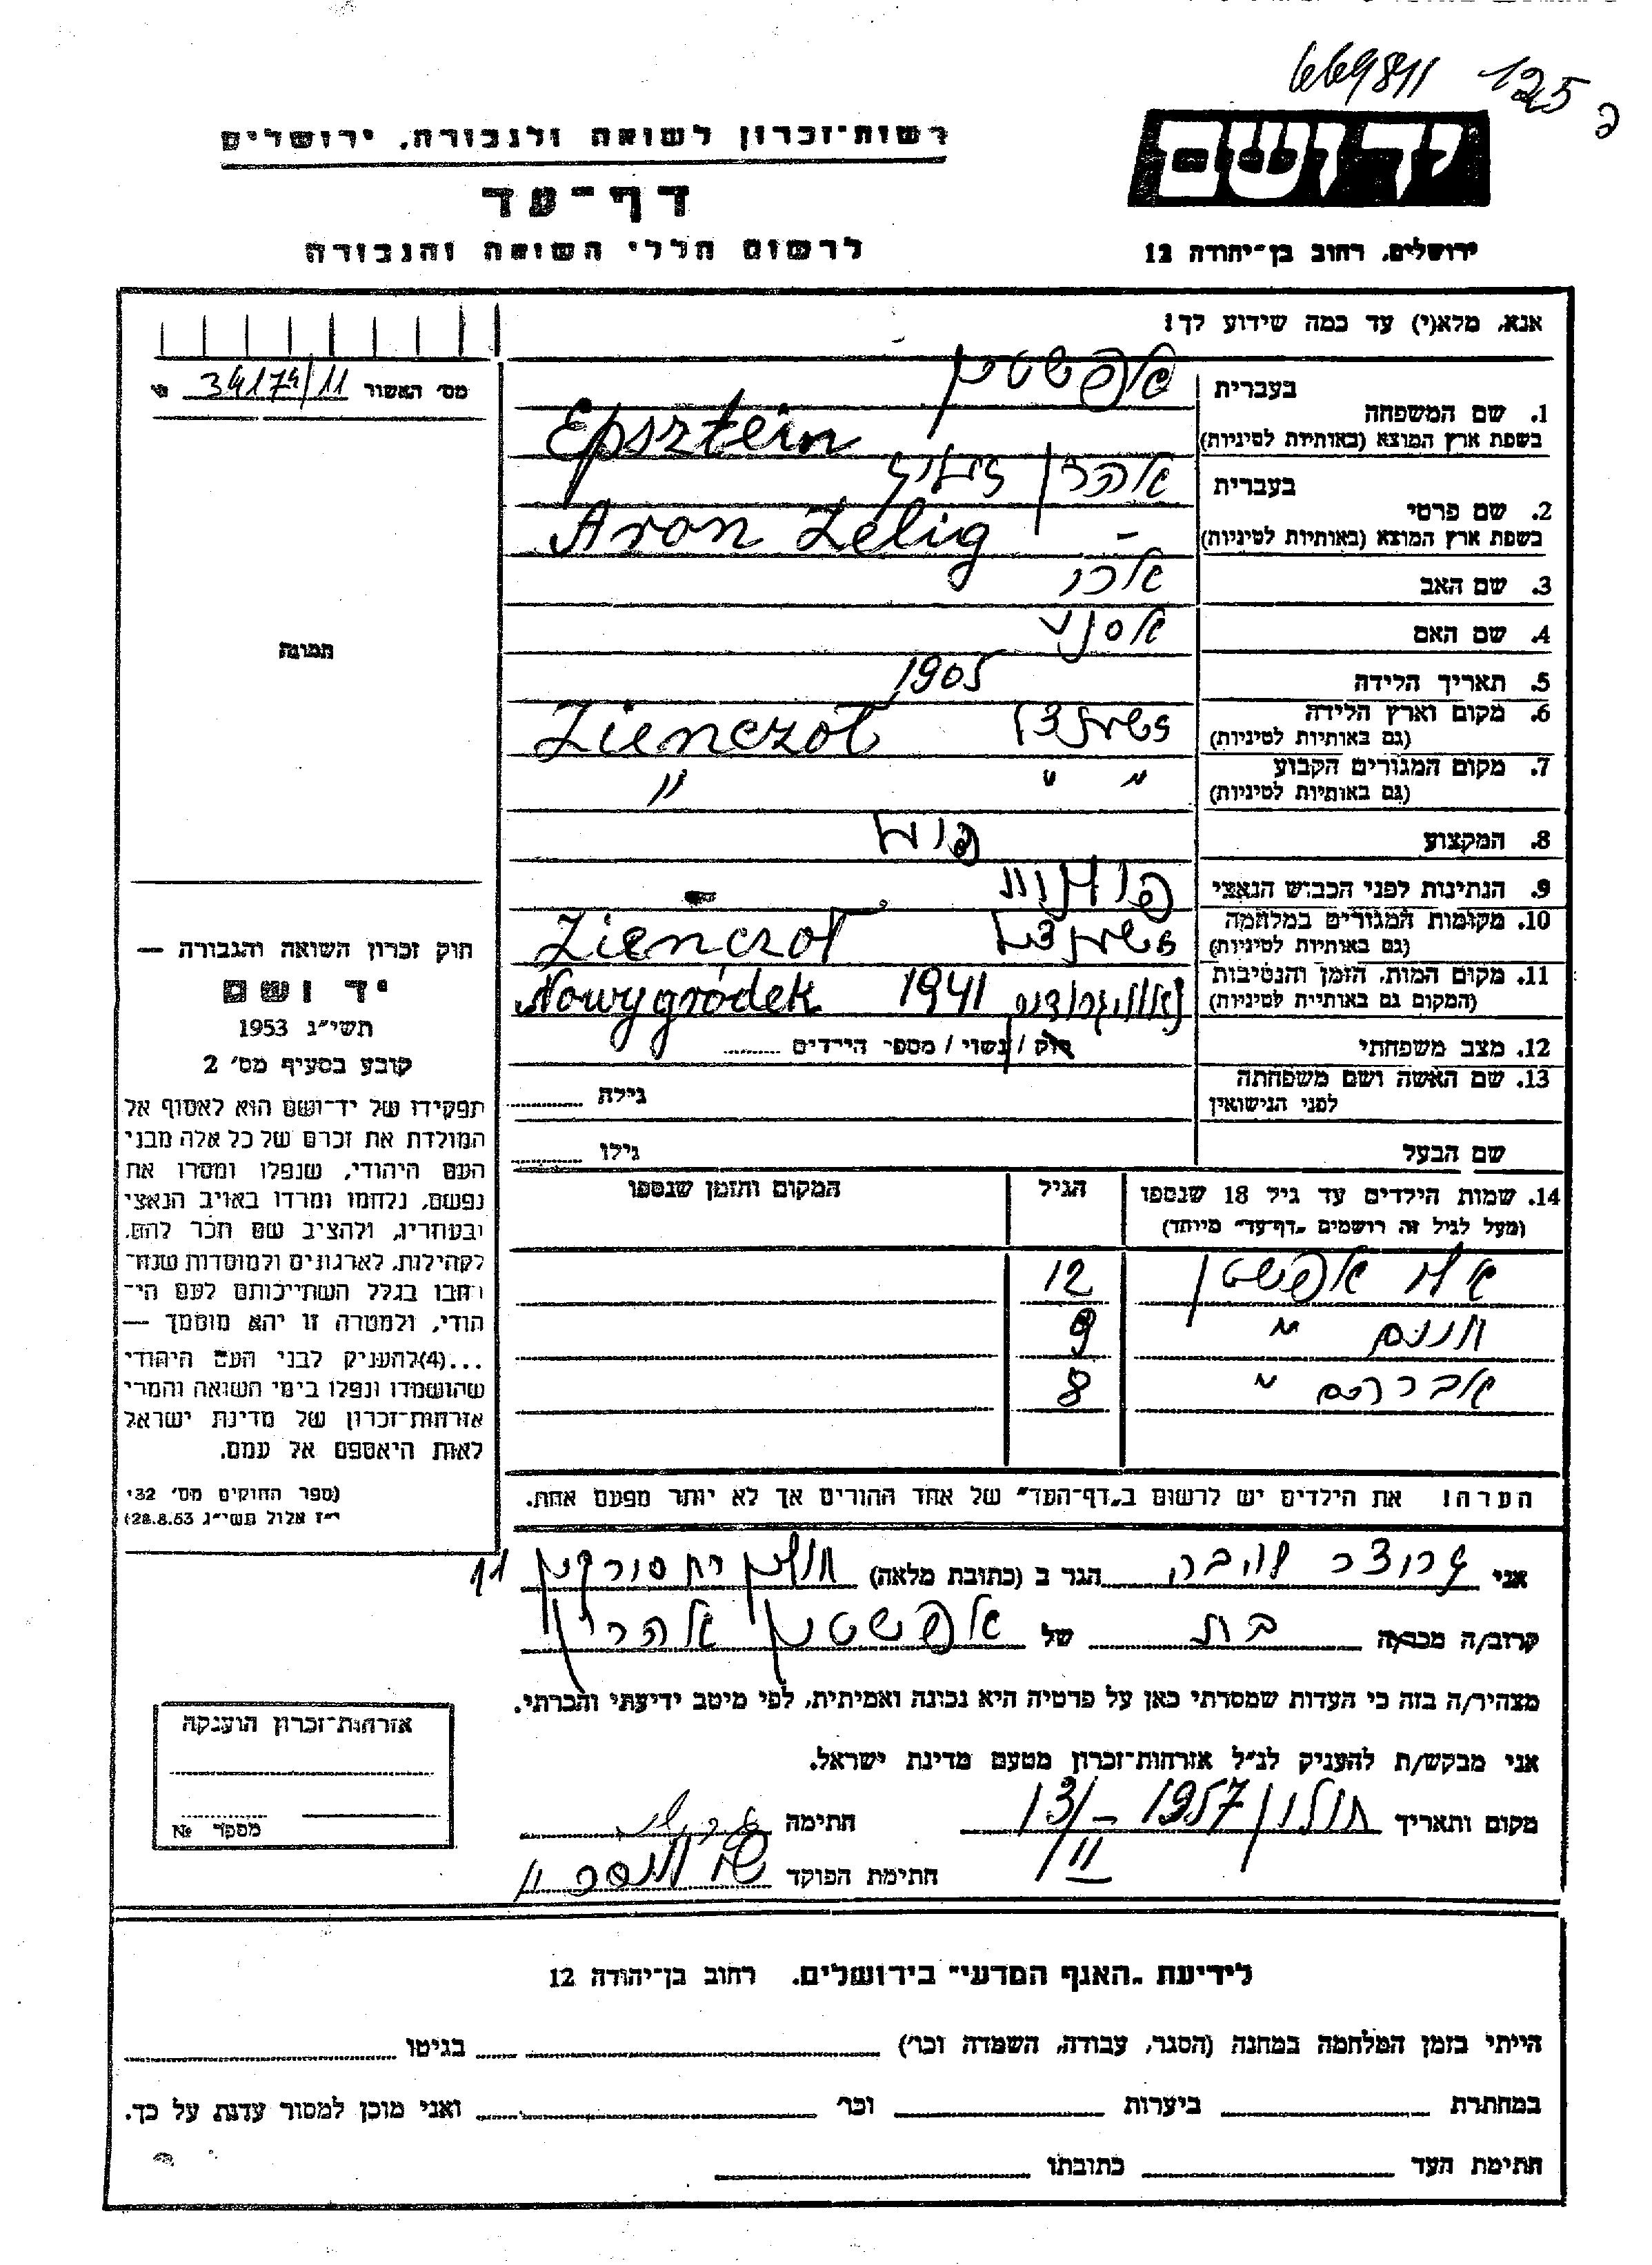 669811 125
רשות־זכרון לשואה ולגבורה, ירושלים
דף־עד
לרשום חללי השואה והגבורה
יד ושם
ירושלים, רחוב בן־יהודה 12
אנא, מלא(י) עד כמה שידוע לך!
מס׳ האשור 34174/11
1. שם המשפחה
בעברית אפשטין
בשפת ארץ המוצא (באותיות לטיניות) Epsztein
2. שם פרטי
בעברית אהרן זליג
בשפת ארץ המוצא (באותיות לטיניות) Aron Zelig
3. שם האב
4. שם האם
5. תאריך הלידה 1905
6. מקום וארץ הלידה
(גם באותיות לטיניות) Zienczoł
7. מקום המגורים הקבוע " "
(גם באותיות לטיניות) "
8. המקצוע
9. הנתינות לפני הכבוש הנאצי
10. מקומות המגורים במלחמה
(גם באותיות לטיניות) Zienczoł
11. מקום המות, הזמן והנסיבות
(המקום גם באותיות לטיניות) 1941 Nowygródek
12. מצב משפחתי רוק / נשוי / מספר הילדים
13. שם האשה ושם משפחתה
לפני הנישואין
גילה
שם הבעל גילו
14. שמות הילדים עד גיל 18 שנספו
(מעל לגיל זה רושמים „דף־עד״ מיוחד)
הגיל
המקום והזמן שנספו
אפשטין 12
" 9
אברהם " 8
הערה! את הילדים יש לרשום ב„דף־העד״ של אחד ההורים אך לא יותר מפעם אחת.
תמונה
חוק זכרון השואה והגבורה —
יד ושם
תשי״ג 1953
קובע בסעיף מס׳ 2
תפקידו של יד־ושם הוא לאסוף אל
המולדת את זכרם של כל אלה מבני
העם היהודי, שנפלו ומסרו את
נפשם, נלחמו ומרדו באויב הנאצי
ובעוזריו, ולהציב שם וזכר להם,
לקהילות, לארגונים ולמוסדות שנח־
רבו בגלל השתייכותם לעם הי־
הודי, ולמטרה זו יהא מוסמך —
...(4)להעניק לבני העם היהודי
שהושמדו ונפלו בימי השואה והמרי
אזרחות־זכרון של מדינת ישראל
לאות היאספם אל עמם.
(ספר החוקים מס׳ 132
י״ז אלול תשי״ג 28.8.53)
אני זהבה הגר ב (כתובת מלאה) חולון 11
קרוב/ה מכר/ה בת של אפשטין אהרון
מצהיר/ה בזה כי העדות שמסרתי כאן על פרטיה היא נכונה ואמיתית, לפי מיטב ידיעתי והכרתי.
אני מבקש/ת להעניק לנ״ל אזרחות־זכרון מטעם מדינת ישראל.
מקום ותאריך חולון 13/II – 1957 חתימה
חתימת הפוקד
אזרחות־זכרון הוענקה
מספר №
לידיעת „האגף המדעי״ בירושלים, רחוב בן־יהודה 12
הייתי בזמן המלחמה במחנה (הסגר, עבודה, השמדה וכו׳) בגיטו
במחתרת ביערות וכו׳ ואני מוכן למסור עדות על כך.
חתימת העד כתובתו